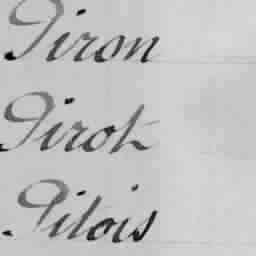 Piron
Pirot
Pitois